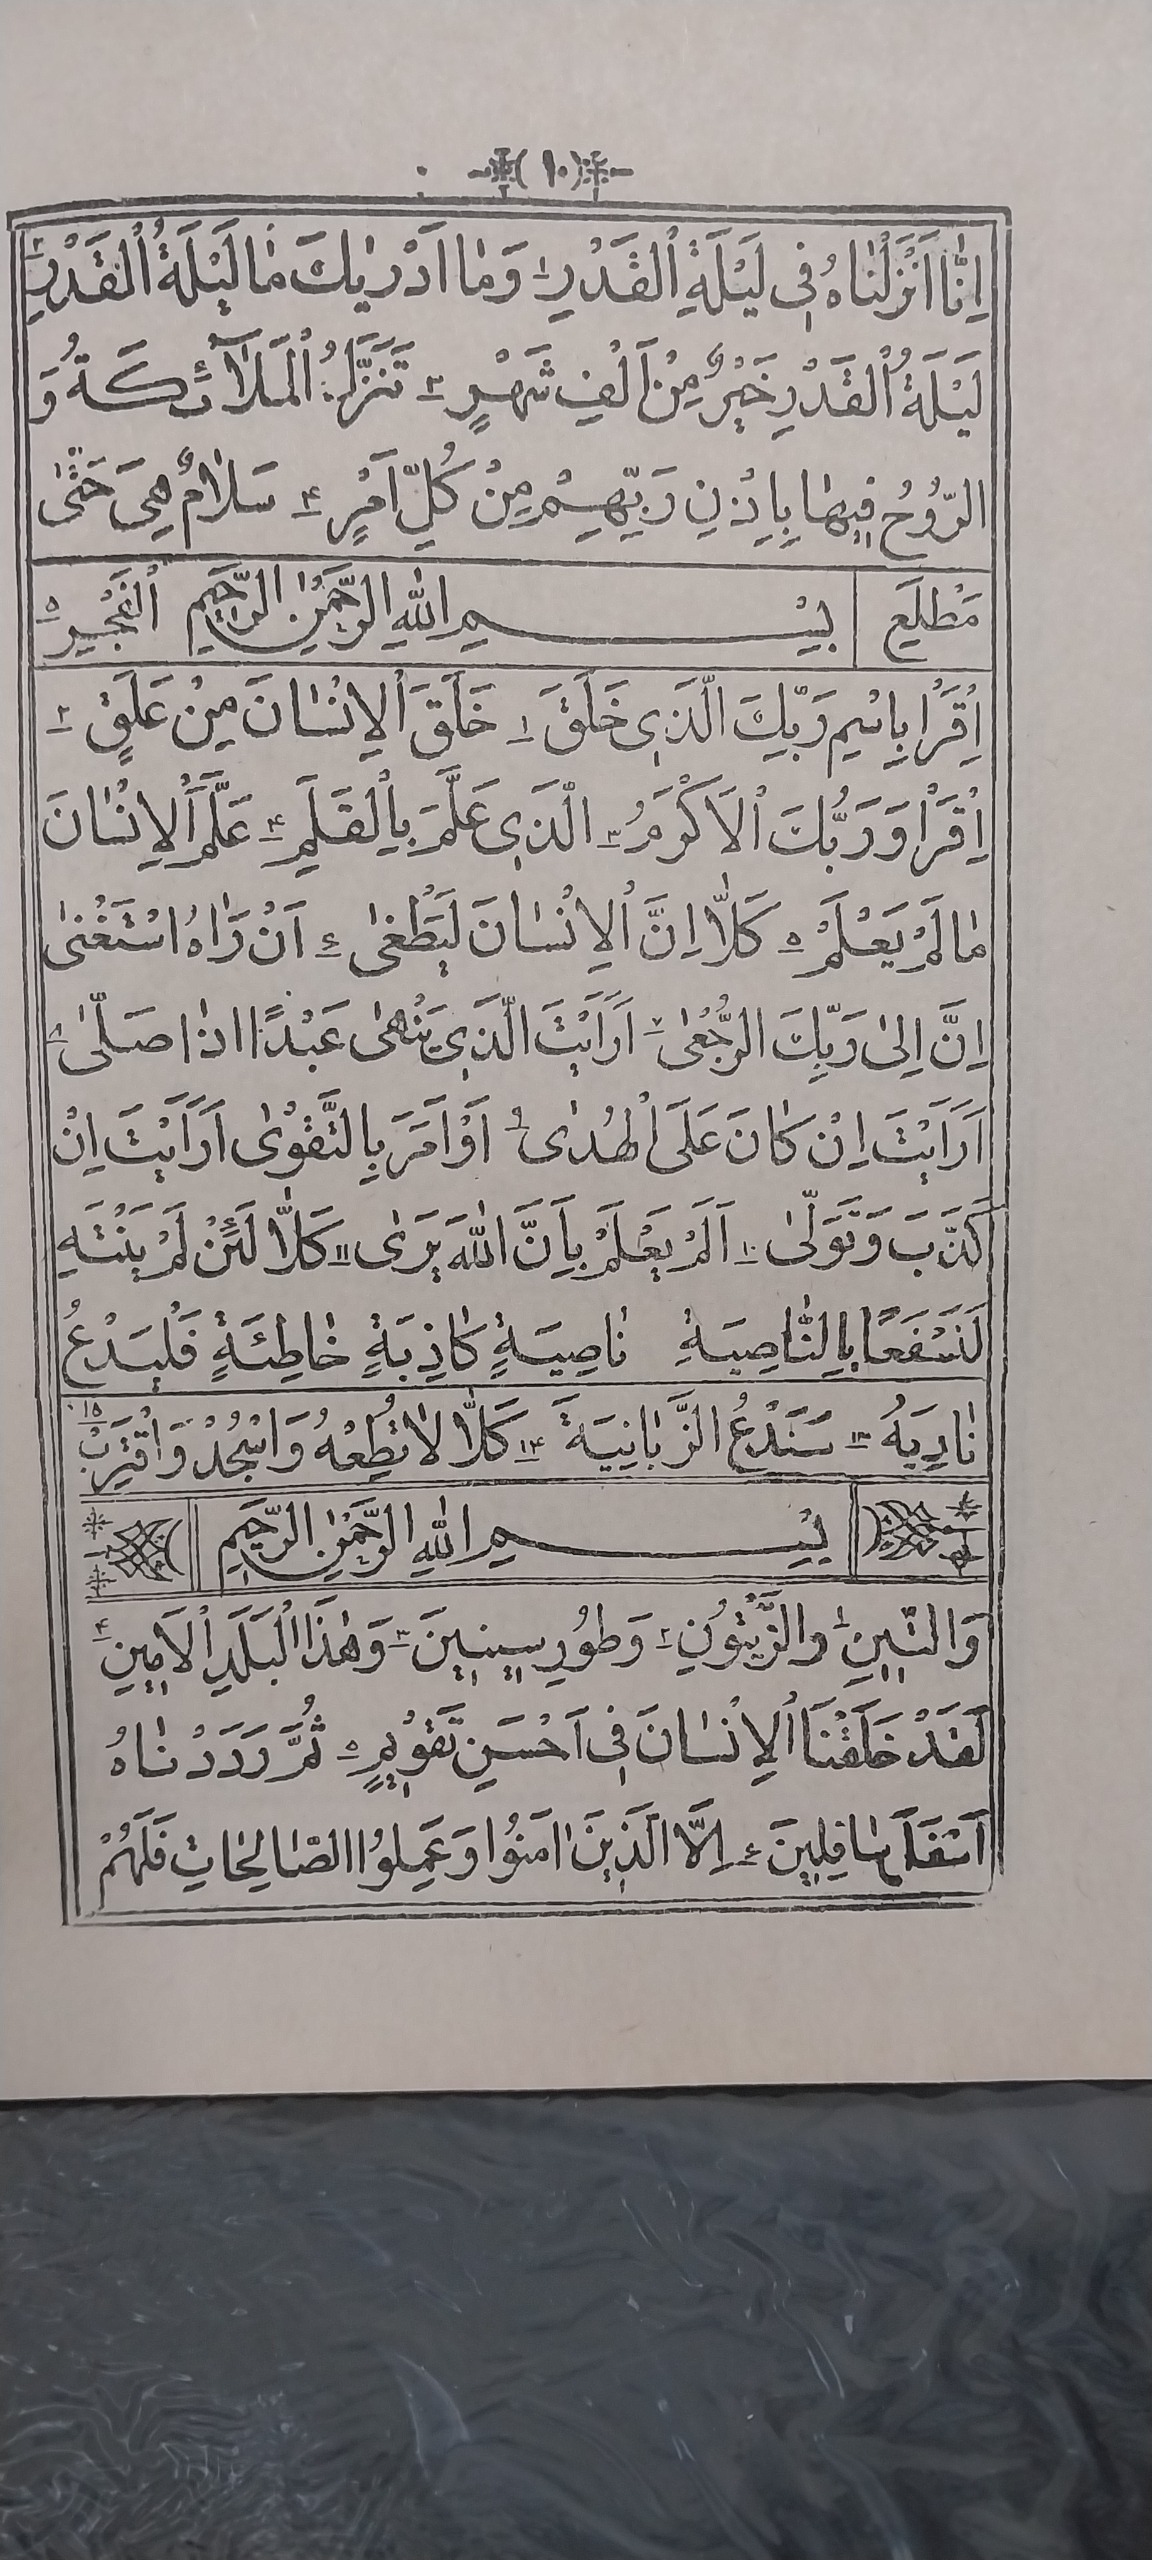 (١٠)
اِنّٰا اَنْزَلْنٰاهُ فِى لَيْلَةِ ٱلْقَدْرِ ١ وَمٰا اَدْرٰيكَ مٰا لَيْلَةُ ٱلْقَدْرِ ٢
لَيْلَةُ ٱلْقَدْرِ خَيْرٌ مِنْ اَلْفِ شَهْرٍ ٣ تَنَزَّلُ ٱلْمَلآئِكَةُ وَ
الرُّوُحُ فِيهٰا بِاِذْنِ رَبِّهِمْ مِنْ كُلِّ اَمْرٍ ۴ سَلٰامٌ هِىَ حَتّٰى
مَطْلَعِ بِسْــــــمِ اللّٰهِ الرَّحْمٰنِ الرَّحِيمِ ٱلْفَجْرِ ۵
اِقْرَاْ بِاسْمِ رَبِّكَ الَّذِى خَلَقَ ١ خَلَقَ ٱلاِنْسٰانَ مِنْ عَلَقٍ ٢
اِقْرَاْ وَرَبُّكَ ٱلاَكْرَمُ ٣ الَّذِى عَلَّمَ بِاْلقَلَمِ ۴ عَلَّمَ ٱلاِنْسٰانَ
مٰا لَمْ يَعْلَمْ ۵ كَلّٰا اِنَّ ٱلاِنْسٰانَ لَيَطْغٰى ۶ اَنْ رَاٰهُ اسْتَغْنٰى
اِنَّ اِلىٰ رَبِّكَ الرُّجْعٰى ٧ اَرَاَيْتَ الَّذِى يَنْهىٰ عَبْدًا اذٰا صَلّٰى ٨
اَرَاَيْتَ اِنْ كٰانَ عَلَى اْلهُدٰى ٩ اَوْ اَمَرَ بِالتَّقْوٰى اَرَاَيْتَ اِنْ
كَذَّبَ وَتَوَلّٰى ١٠ اَلَمْ يَعْلَمْ بِاَنَّ اللّٰهَ يَرٰى ١١ كَلّٰا لَئِنْ لَمْ يَنْتَهِ
لَنَسْفَعًا بِالنّٰاصِيَةِ نٰاصِيَةٍ كٰاذِبَةٍ خٰاطِئَةٍ فَلْيَدْعُ
نٰادِيَهُ ١٣ سَنَدْعُ الزَّبٰانِيَةَ ١۴ كَلّٰا لاٰ تُطِعْهُ وَاسْجُدْ وَاقْتَرِبْ ١۵
بِسْــــــمِ اللّٰهِ الرَّحْمٰنِ الرَّحِيمِ
وَالتّينِ ١ وَالزَّيْتُونِ ٢ وَطُورِ سِينِينَ ٣ وَهٰذَا اْلبَلَدِ ٱلاَمِينِ ۴
لَقَدْ خَلَقْنَا ٱلاِنْسٰانَ فِى اَحْسَنِ تَقْوِيمٍ ۵ ثُمَّ رَدَدْنٰاهُ
اَسْفَلَ سٰافِلِينَ ۶ اِلَّا الَّذِينَ اٰمَنُوا وَعَمِلُوا الصّٰالِحٰاتِ فَلَهُمْ